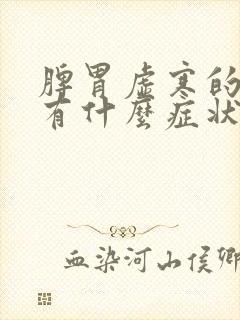 脾胃虛寒的
有什麼症狀
血染河山侯卿